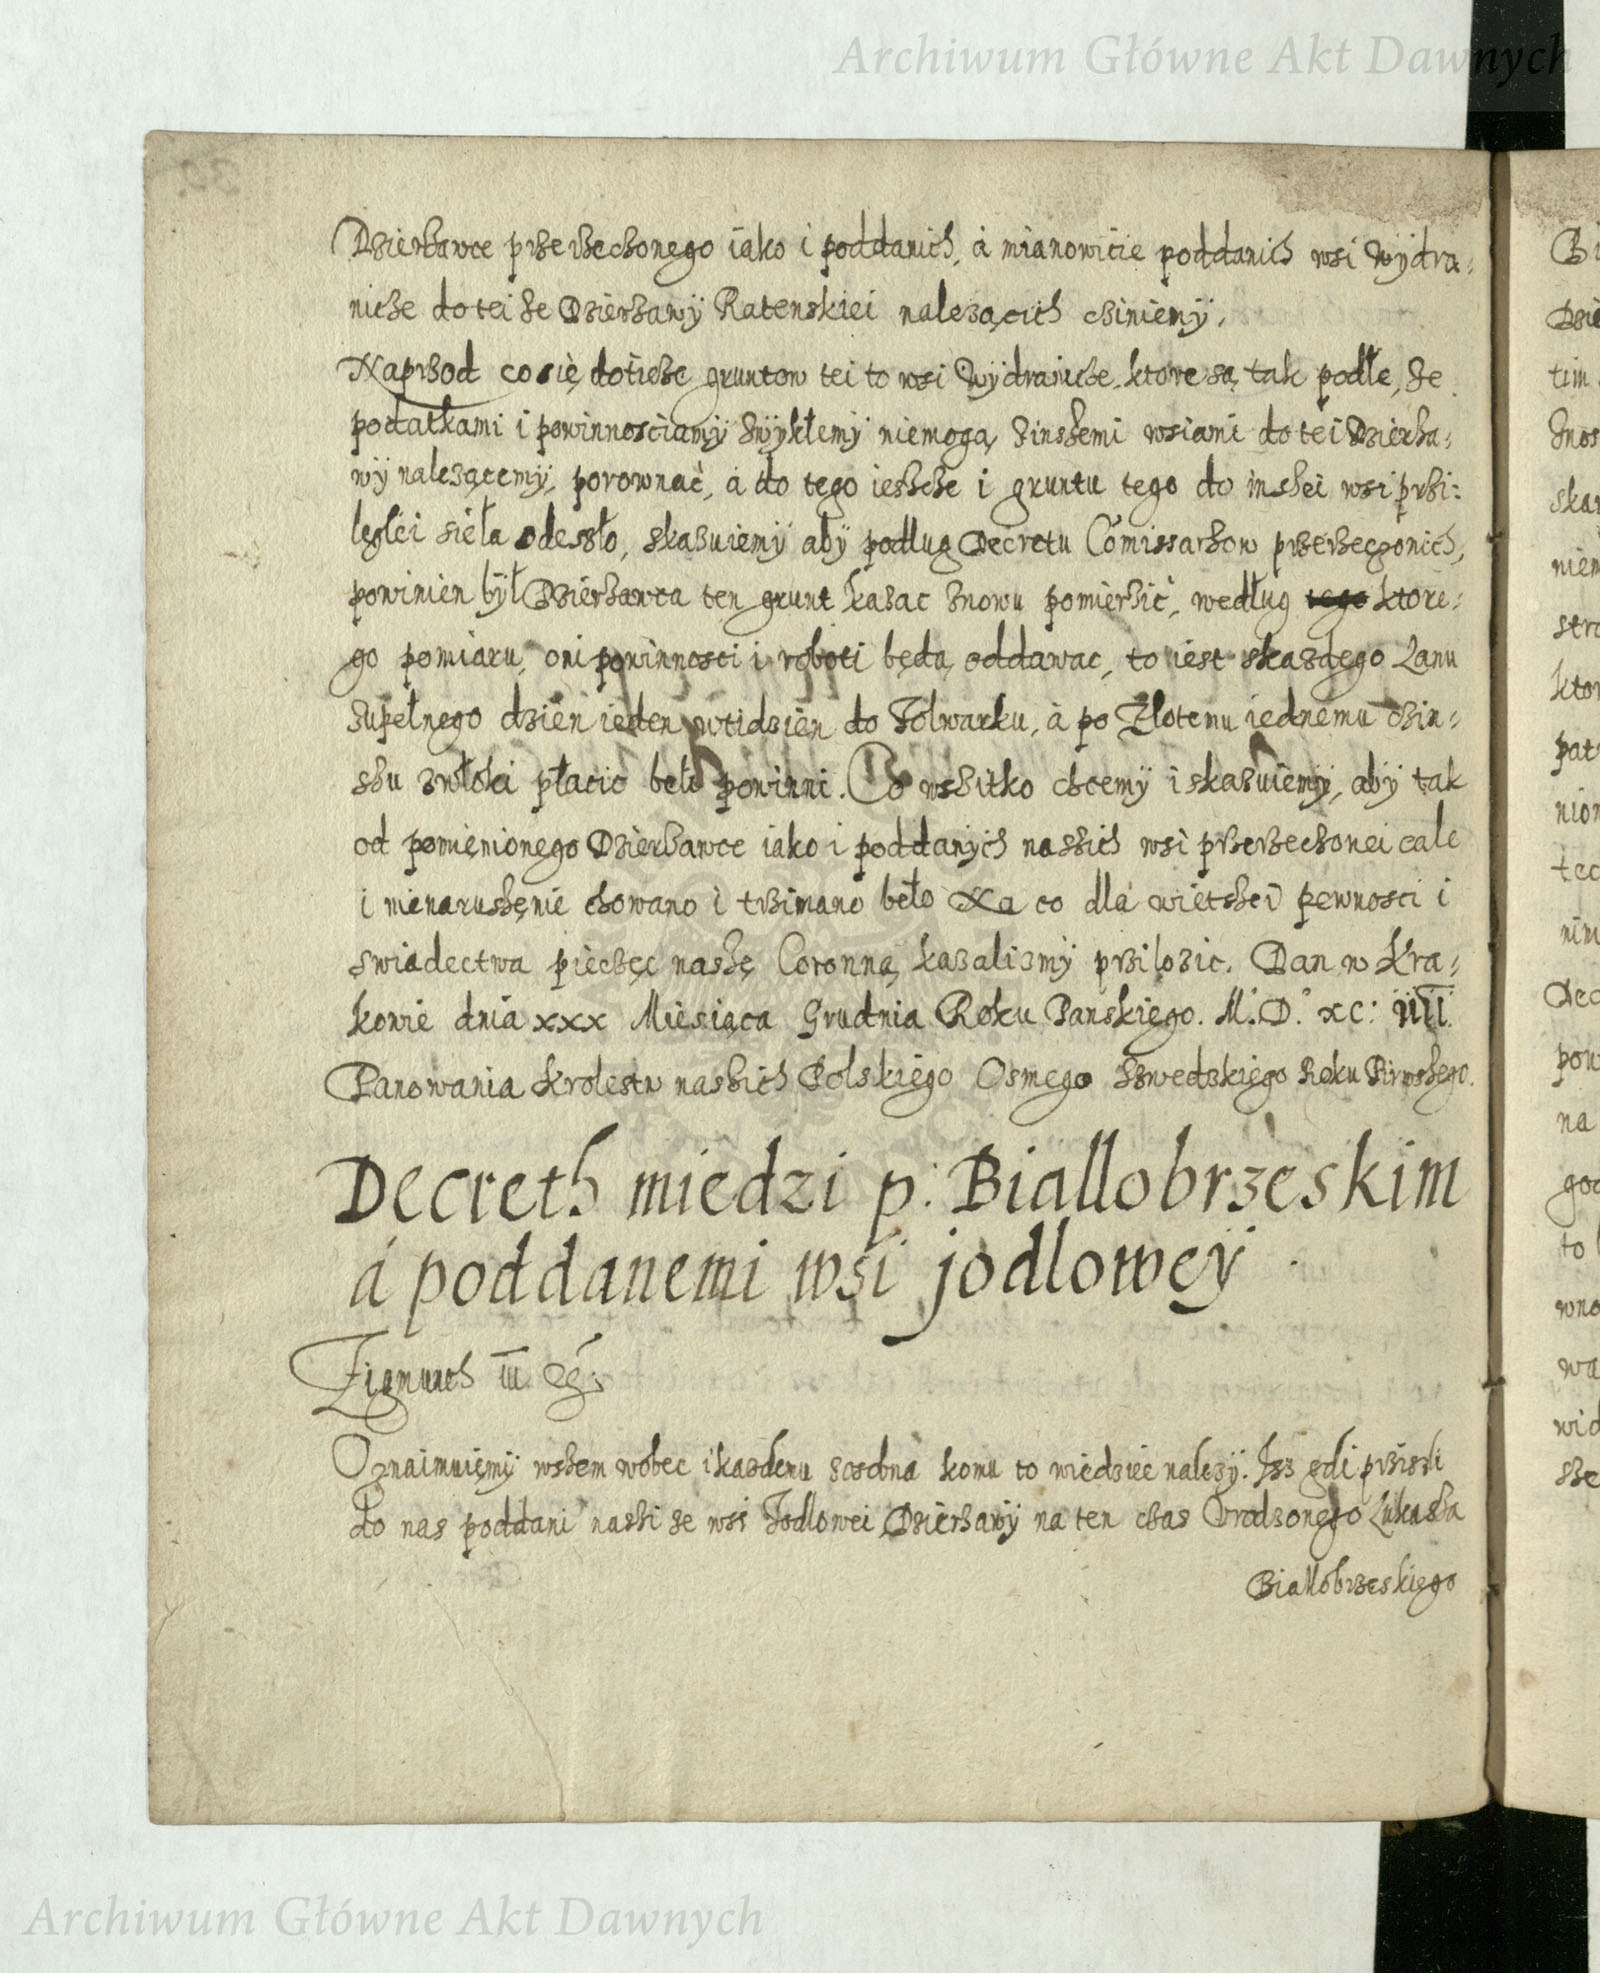 Archiwum Główne Akt Dawnych
Dzierżawce przerzeczonego iako i poddanich, à mianowicie poddanich wsi Wÿdra-
nicze do tei że Dzierżawÿ Ratenskiei należącich cziniemÿ.
Naprzod co się doticze gruntow tei to wsi Wÿdranicze, ktore są tak podłe, że
podatkami i powinnosciamÿ zwÿkłemÿ niemogą zinszemi wsiami do tei Dzierża-
wÿ należącemÿ, porownać, à do tego ieszcze i gruntu tego do inszei wsi przi-
ległei sieła odeszło, skazuiemÿ abÿ podług Decretu Comissarzow przerzeczonich,
powinien bÿł Dzierżawca ten grunt kazac znowu pomierzić, według tego ktore-
go pomiaru, oni powinnosci i roboti będą oddawac, to iest skażdego Lanu
zupełnego dzien ieden wtidzien do Folwarku, à po Złotemu iednemu czin-
szu zwłoki płacic beło powinni. Co wszitko chcemÿ i skazuiemÿ, abÿ tak
od pomienionego Dzierżawce iako i poddanÿch naszich wsi przerzeczonei cale
i nienaruszenie chowano i trzimano beło Na co dla wietszei pewnosci i
swiadectwa pieczęc naszę Coronną kazalismÿ przilozic. Dan w Kra-
kowie dnia xxx Miesiąca Grudnia Roku Panskiego. M. D. xc: iiii.
Panowania Krolestw naszich Polskiego Osmego Szwedzkiego Roku Pirwszego.
Decreth miedzi p: Biallobrzeskim
á poddanemi wsi jodloweÿ
Zigmunth III etc.
Oznaimuiemÿ wszem wobec i kazdemu zosobna komu to wiedziec nalezÿ. Isz gdi prziszli
do nas poddani naszi ze wsi Jodlowei Dzierżawÿ na ten czas Urodzonego Lukasza
Biallobrzeskiego
Archiwum Główne Akt Dawnych